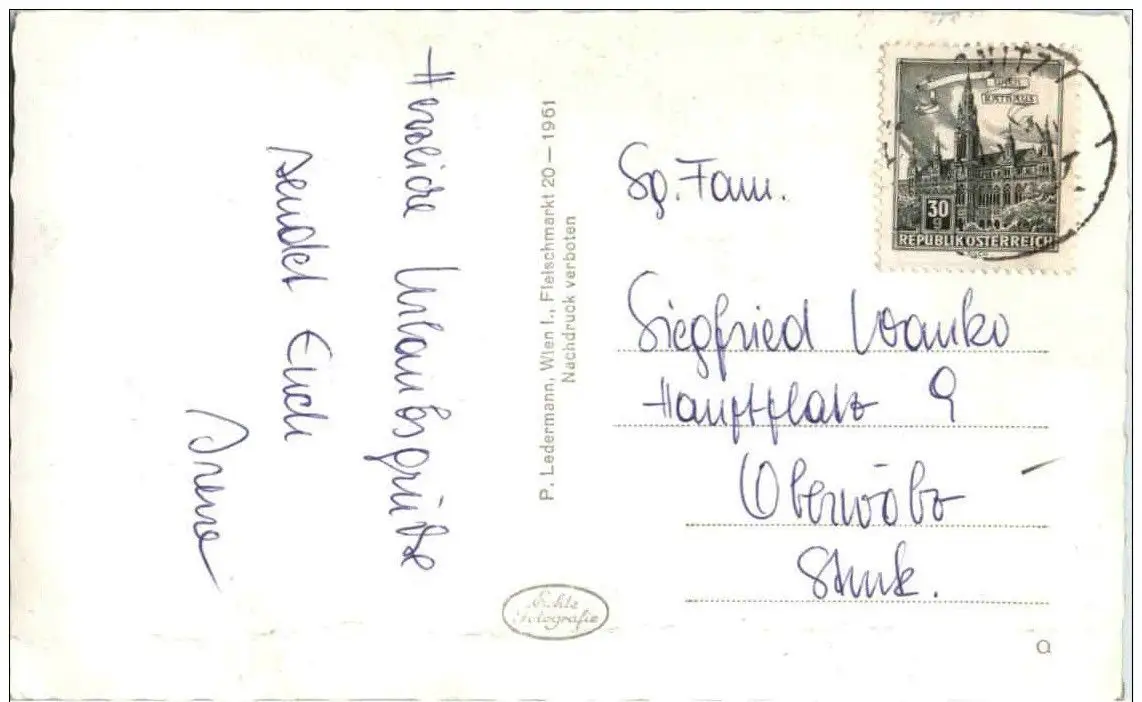 Herzliche Urlaubsgrüße
sendet Euch
Irene
P. Ledermann, Wien I., Fleischmarkt 20 – 1961
Nachdruck verboten
Echte
Fotografie
WIEN
RATHAUS
30
g
REPUBLIK ÖSTERREICH
Sg. Fam.
Siegfried Wanko
Hauptplatz 9
Oberwölz
Stmk.
Q